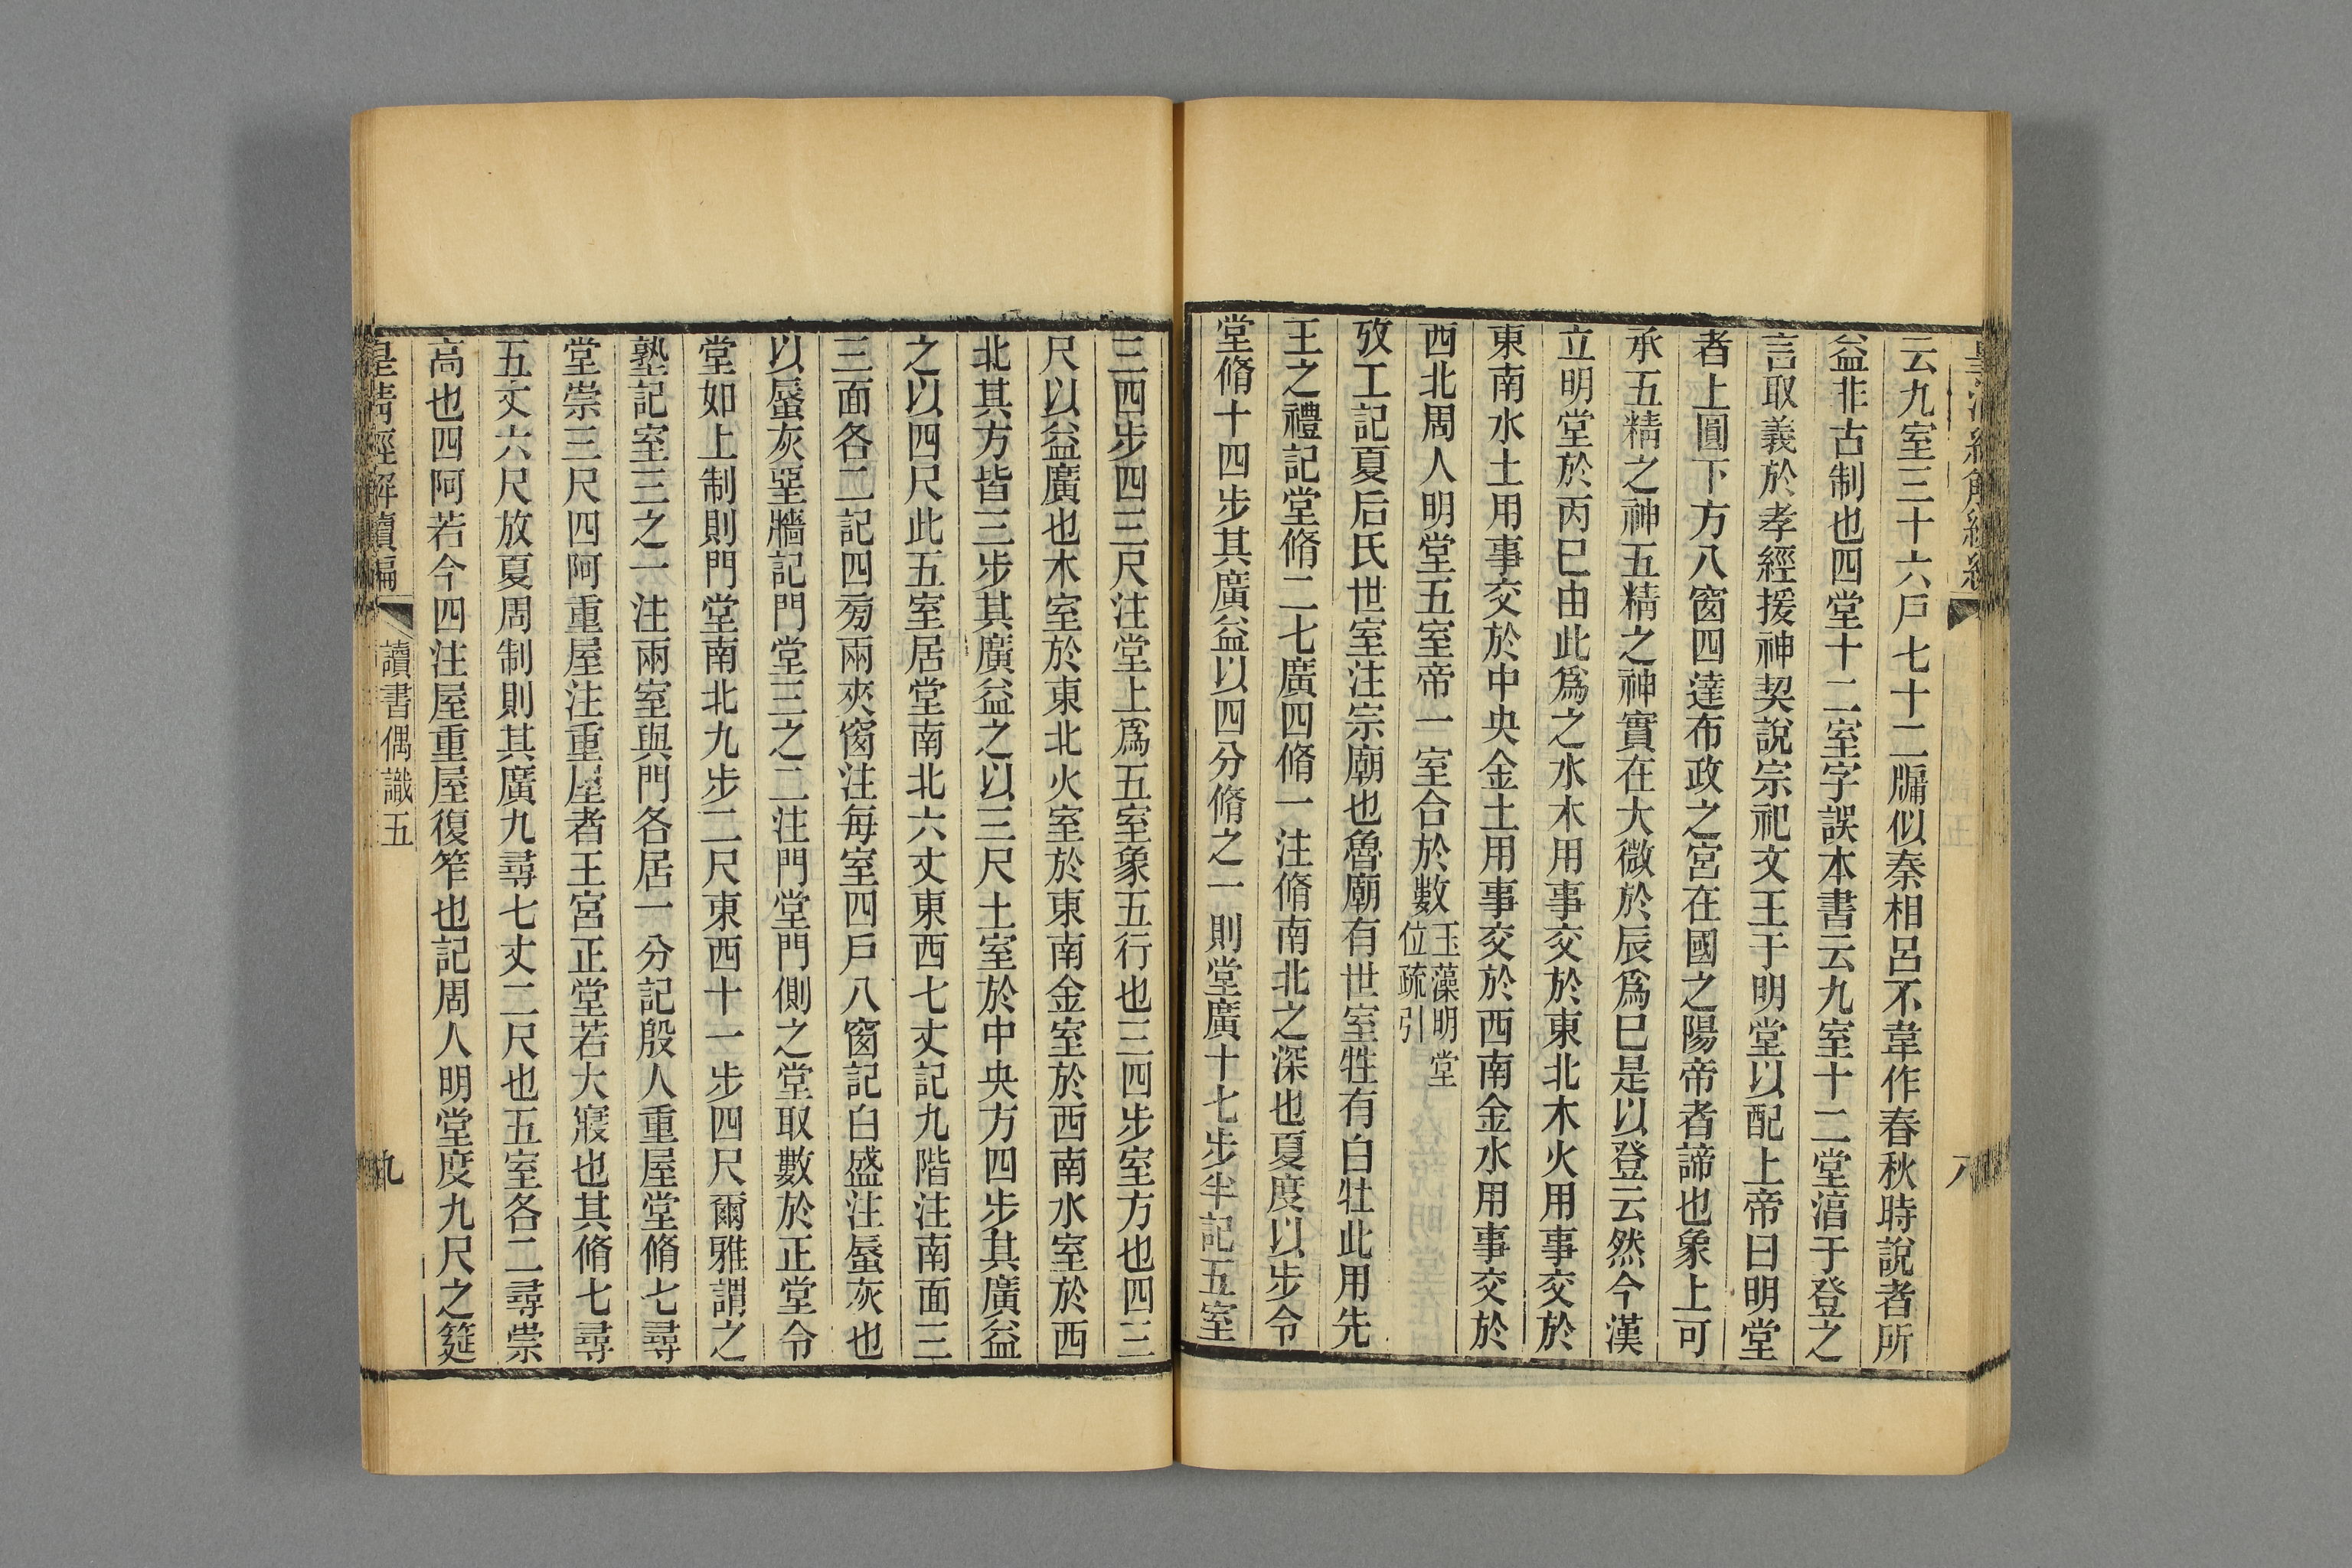 云九室三十六戸七十二牖似秦相呂不韋作春秋時說者所
益非古制也四堂十二室字誤本書云九室十二堂淳于登之
言取義於孝經援神契說宗祀文王于明堂以配上帝曰明堂
者上圓下方八窗四達布政之宮在國之陽帝者諦也象上可
承五精之神五精之神實在大微於辰爲巳是以登云然今漢
立明堂於丙巳由此爲之水木用事交於東北木火用事交於
東南火土用事交於中央金土用事交於西南金水用事交於
西北周人明堂五室帝一室合於數玉藻明堂
位疏引
攷工記夏后氏世室注宗廟也魯廟有世室牲有白牡此用先
王之禮記堂脩二七廣四脩一注脩南北之深也夏度以步令
堂脩十四步其廣益以四分脩之一則堂廣十七步半記五室
三四步四三尺注堂上爲五室象五行也三四步室方也四三
尺以益廣也木室於東北火室於東南金室於西南水室於西
北其方皆三步其廣益之以三尺土室於中央方四步其廣益
之以四尺此五室居堂南北六丈東西七丈記九階注南面三
三面各二記四旁兩夾窗注每室四戸八窗記白盛注蜃灰也
以蜃灰堊牆記門堂三之二注門堂門側之堂取數於正堂令
堂如上制則門堂南北九步二尺東西十一步四尺爾雅謂之
塾記室三之一注兩室與門各居一分記殷人重屋堂脩七尋
堂崇三尺四阿重屋注重屋者王宮正堂若大寢也其脩七尋
五丈六尺放夏周制則其廣九尋七丈二尺也五室各二尋崇
高也四阿若今四注屋重屋復笮也記周人明堂度九尺之筵
皇清經解續編
讀書偶識五
九